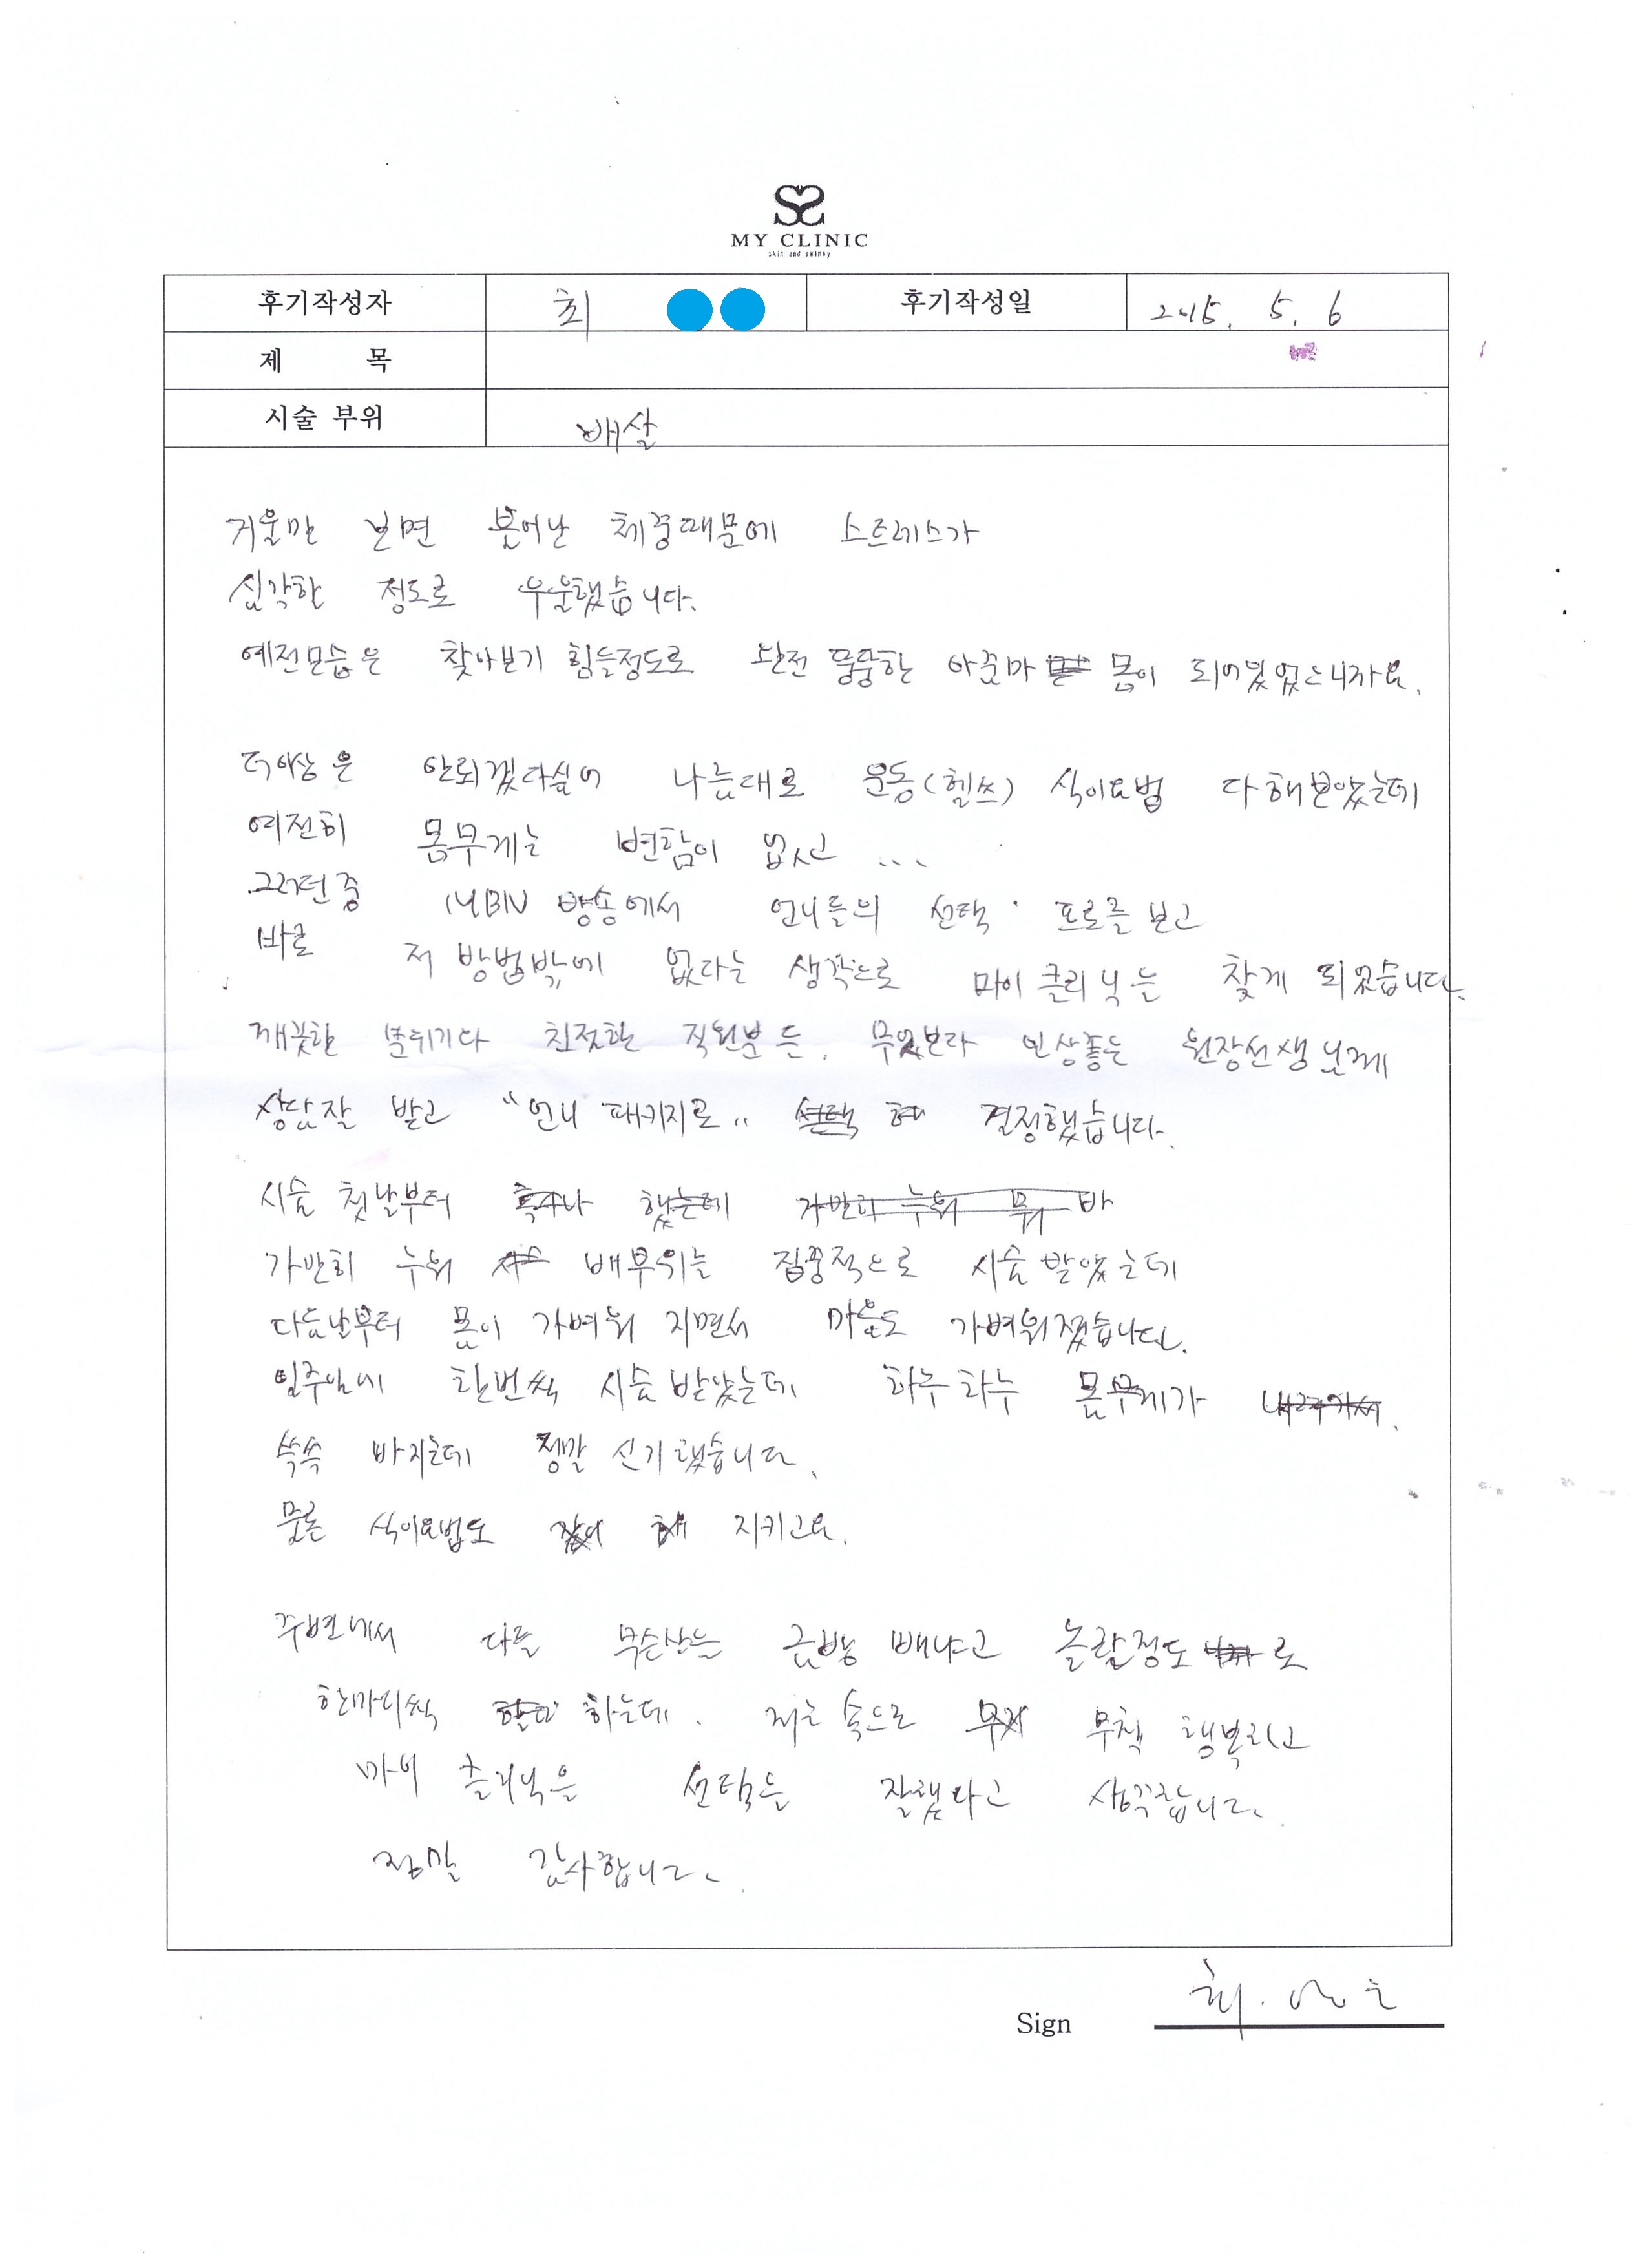 MY CLINIC
skin and skinny
후기작성자 최 후기작성일 2015. 5. 6
제 목
시술 부위 배살
거울만 보면 불어난 체중때문에 스트레스가
심각한 정도로 우울했습니다.
예전모습은 찾아보기 힘들정도로 완전 뚱뚱한 아줌마 몸이 되어있었으니까요.
더이상은 안되겠다싶어 나름대로 운동(헬쓰) 식이요법 다해보았는데
여전히 몸무게는 변함이 없고 ...
그러던중 MBN 방송에서 언니들의 선택 프로를 보고
바로 저 방법밖에 없다는 생각으로 마이클리닉을 찾게 되었습니다.
깨끗한 분위기다 친절한 직원분들, 무엇보다 인상좋은 원장선생님께
상담잘 받고 "언니 패키지로" 결정했습니다.
시술 첫날부터
가만히 누워 배부위를 집중적으로 시술받았는데
다음날부터 몸이 가벼워 지면서 마음도 가벼워졌습니다.
일주일에 한번씩 시술받았는데 하루하루 몸무게가
쑥쑥 빠지는데 정말 신기했습니다.
물론 식이요법도 지키고요.
주변에서 다들 무슨살을 금방 빼냐고 놀랄정도로
한마디씩 하는데. 저는 속으로 무척 행복하고
마이 클리닉을 선택을 잘했다고 생각합니다.
정말 감사합니다.
Sign 최.